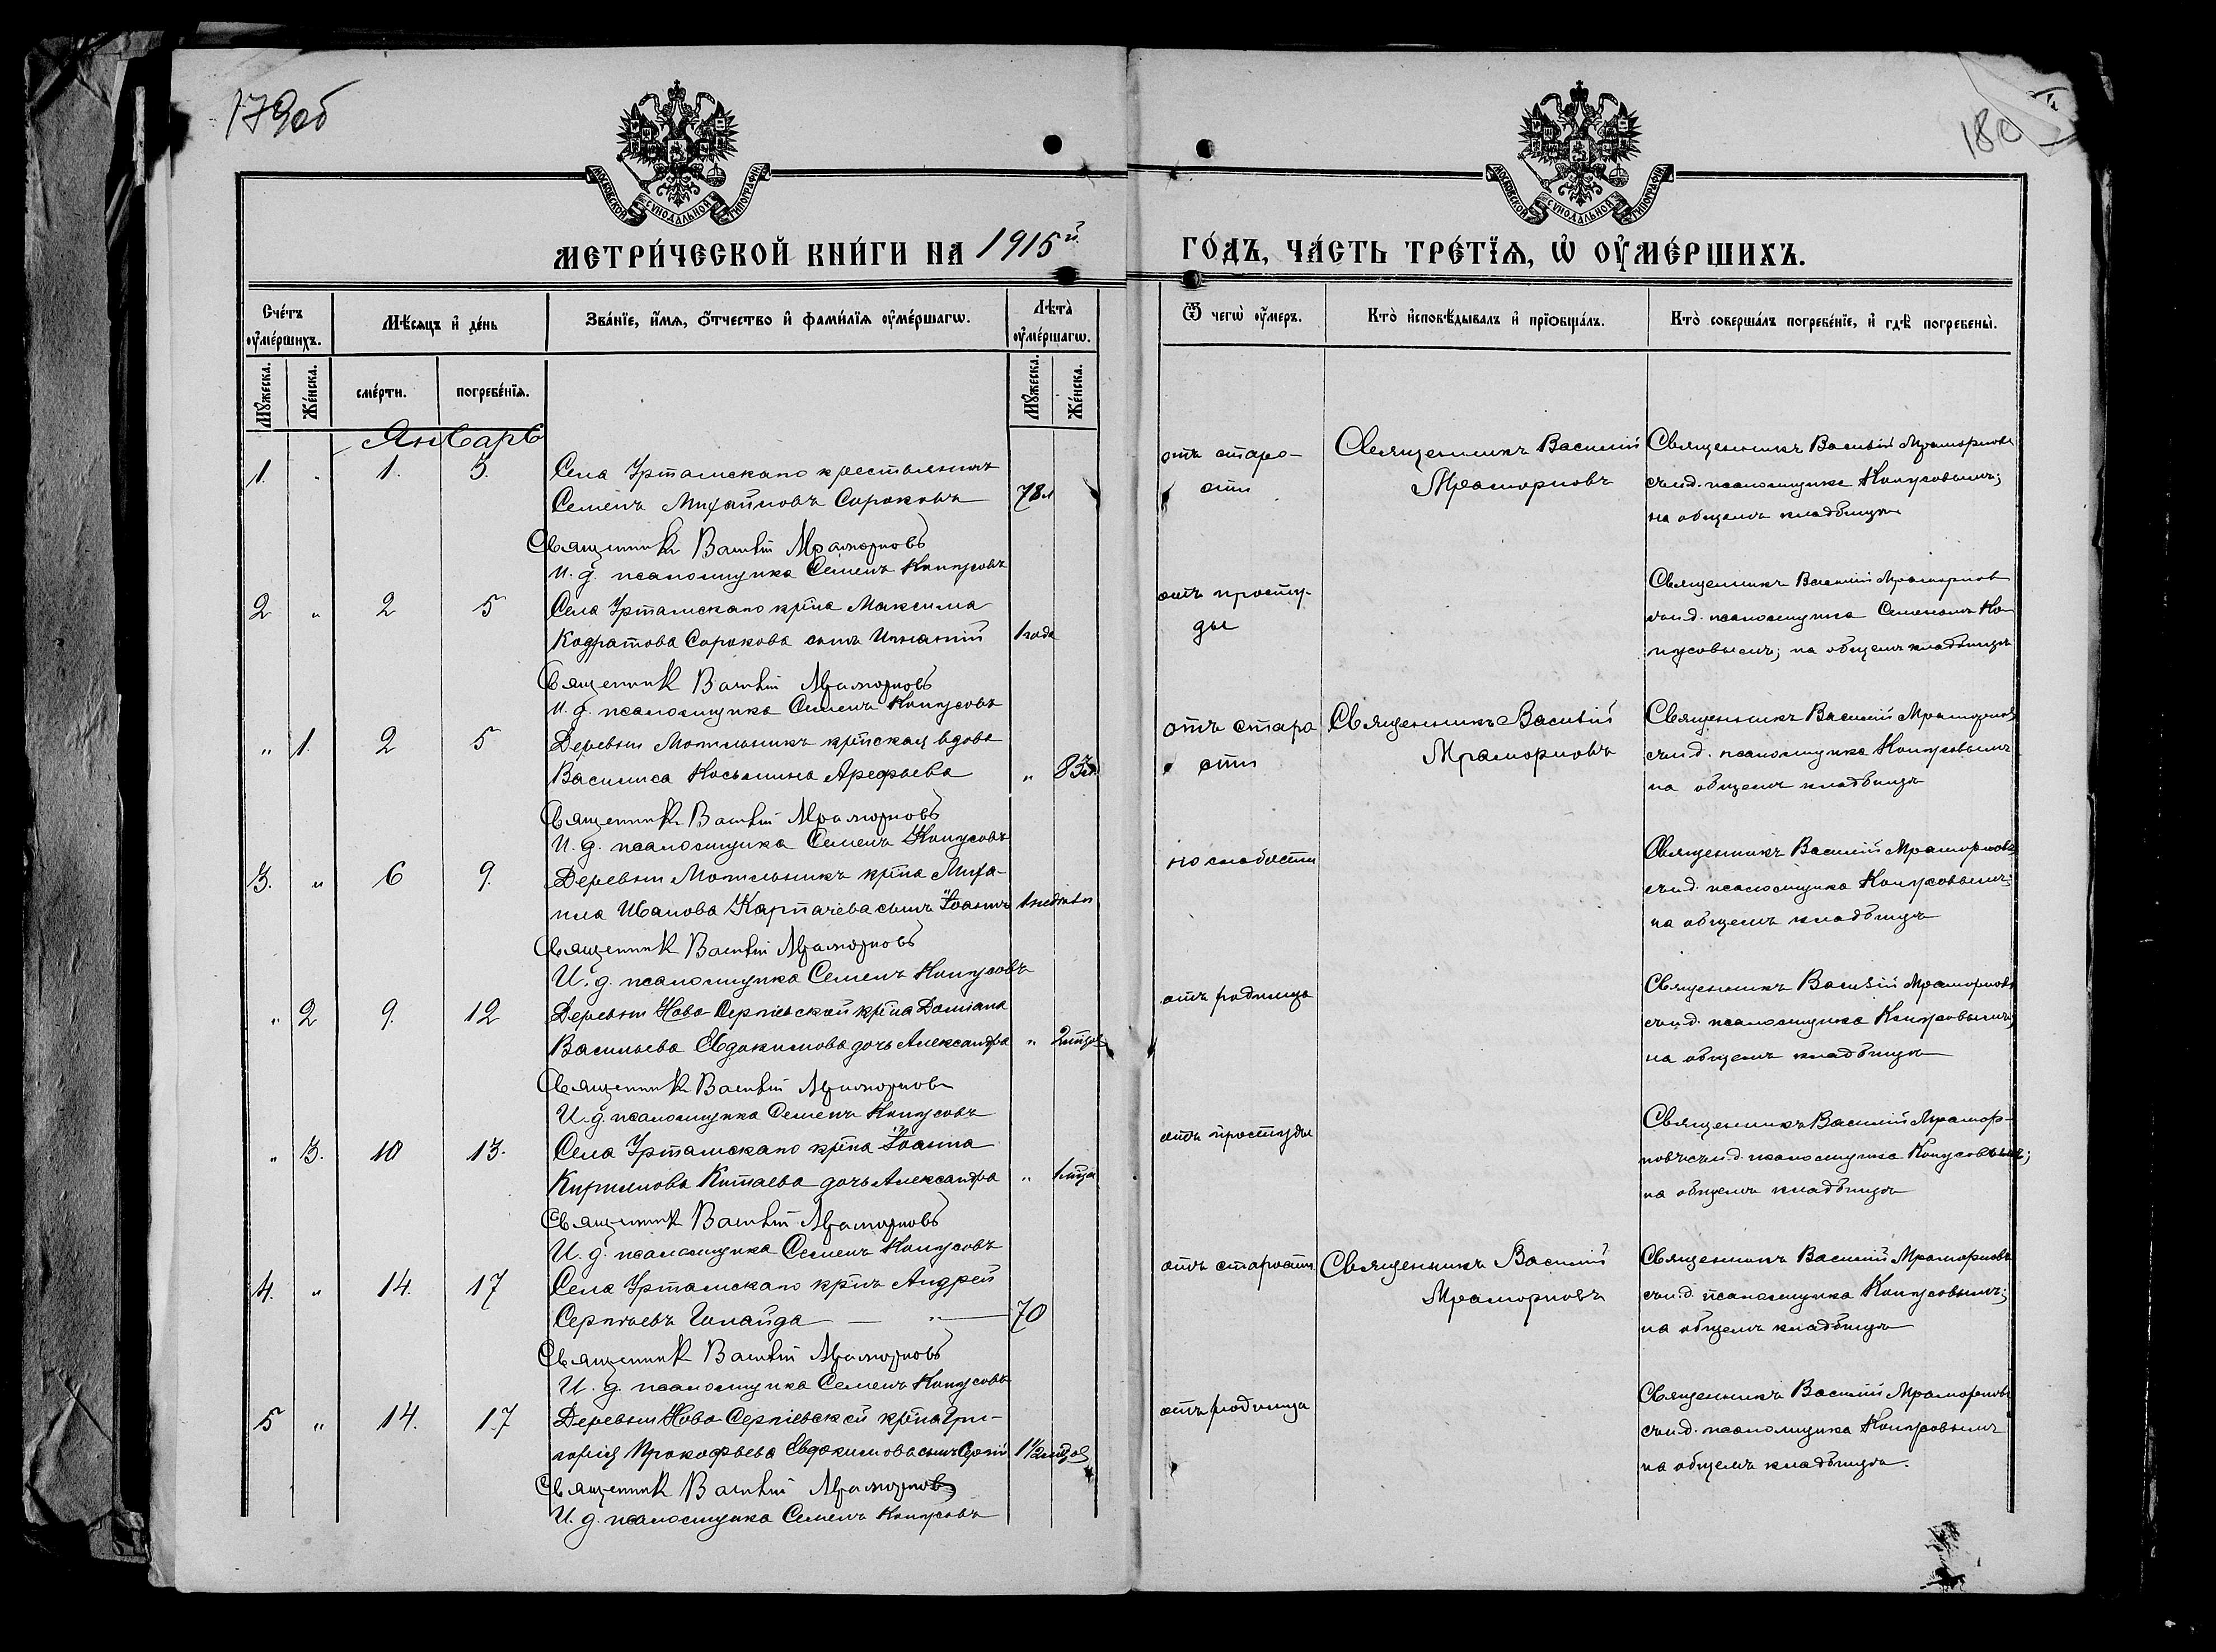 179об
180
МОСКОВСКОЙ СѴНОДАЛЬНОЙ ТИПОГРАФІИ
МОСКОВСКОЙ СѴНОДАЛЬНОЙ ТИПОГРАФІИ
МЕТРИ́ЧЕСКОЙ КНИ́ГИ НА 1915й
ГО́ДЪ, ЧА́СТЬ ТРЕ́ТЇѦ, Ѡ҆ ОУ҆МЕ́РШИХЪ.
Сче́тъ оу҆ме́ршихъ.
Мѣ́сяцъ и҆ де́нь
Зва́нїе, и҆́мя, о҆́тчество и҆ фами́лїя оу҆ме́ршагѡ.
Лѣ́та оу҆ме́ршагѡ.
Ѿ чегѡ̀ оу҆́меръ.
Кто̀ и҆сповѣ́дывалъ и҆ прїѡбща́лъ.
Кто̀ соверша́лъ погребе́нїе, и҆ гдѣ̀ погребены̀.
Мꙋ́жеска.
Же́нска.
сме́рти.
погребе́нїя.
Мꙋ́жеска.
Же́нска.
Январь
1. " 1. 5. Села Уртамскаго крестьянинъ
Семенъ Михайловъ Сороковъ 78 л
отъ старо-
сти
Священникъ Василій
Мраморновъ
Священникъ Василій Мраморновъ
съ и.д. псаломщика Копусовымъ;
на общемъ кладбищѣ
Священникъ Василій Мраморновъ
И. д. псаломщика Семенъ Копусовъ
2 " 2 5 Села Уртамскаго кр̃на Максима
Кодратова Сорокова сынъ Игнатій 1 года
отъ просту-
ды
Священникъ Василій Мраморнов
съ и.д. псаломщика Семеномъ Ко
пусовымъ; на общемъ кладбищѣ
Священник Василій Мраморновъ
И. д. псаломщика Семенъ Копусовъ
" 1. 2 5 Деревни Могильникъ кр̃нская вдова
Василиса Косьмина Арефьева " 83 л
отъ старо
сти
Священникъ Василій
Мраморновъ
Священникъ Василій Мраморновъ
съ и.д. псаломщика Копусовымъ
на общемъ кладбищѣ
Священникъ Василій Мраморновъ
И. д. псаломщика Семенъ Копусовъ
3. " 6 9. Деревни Могильникъ кр̃на Миха-
ила Иванова Карпачева сынъ Іоаннъ 1 недѣли
по слабости
Священникъ Василій Мраморновъ
съ и.д. псаломщика Копусовымъ;
на общемъ кладбищѣ
Священник Василій Мраморновъ
И. д. псаломщика Семенъ Копусовъ
" 2 9. 12 Деревни Ново-Сергіевской кр̃на Даміана
Васильева Евдокимова дочь Александра " 2 мѣс
отъ родимца
Священникъ Василій Мраморновъ
съ и.д. псаломщика Копусовымъ;
на общемъ кладбищѣ
Священникъ Василій Мраморновъ
И. д. псаломщика Семенъ Копусовъ
" 3. 10 13. Села Уртамскаго кр̃на Іоанна
Кириллова Китаева дочь Александра " 1 м̃ца
отъ простуды
Священникъ Василій Мрамор-
новъ съ и.д. псаломщика Копусовымъ;
на общемъ кладбищѣ
Священник Василій Мраморновъ
И. д. псаломщика Семенъ Копусовъ
4. " 14. 17 Села Уртамскаго кр̃нъ Андрей
Сергѣевъ Голайда — " — 70
отъ старости
Священникъ Василій
Мраморновъ
Священникъ Василій Мраморновъ
съ и.д. псаломщика Копусовымъ;
на общемъ кладбищѣ
Священник Василій Мраморновъ
И. д. псаломщика Семенъ Копусовъ
5 " 14. 17 Деревни Ново-Сергіевской кр̃на Гри-
горія Прокофьева Евдокимова сынъ Сергій 1 1/2 мѣс
отъ родимца
Священникъ Василій Мраморновъ
съ и.д. псаломщика Копусовымъ
на общемъ кладбищѣ.
Священник Василій Мраморновъ
И. д. псаломщика Семенъ Копусовъ